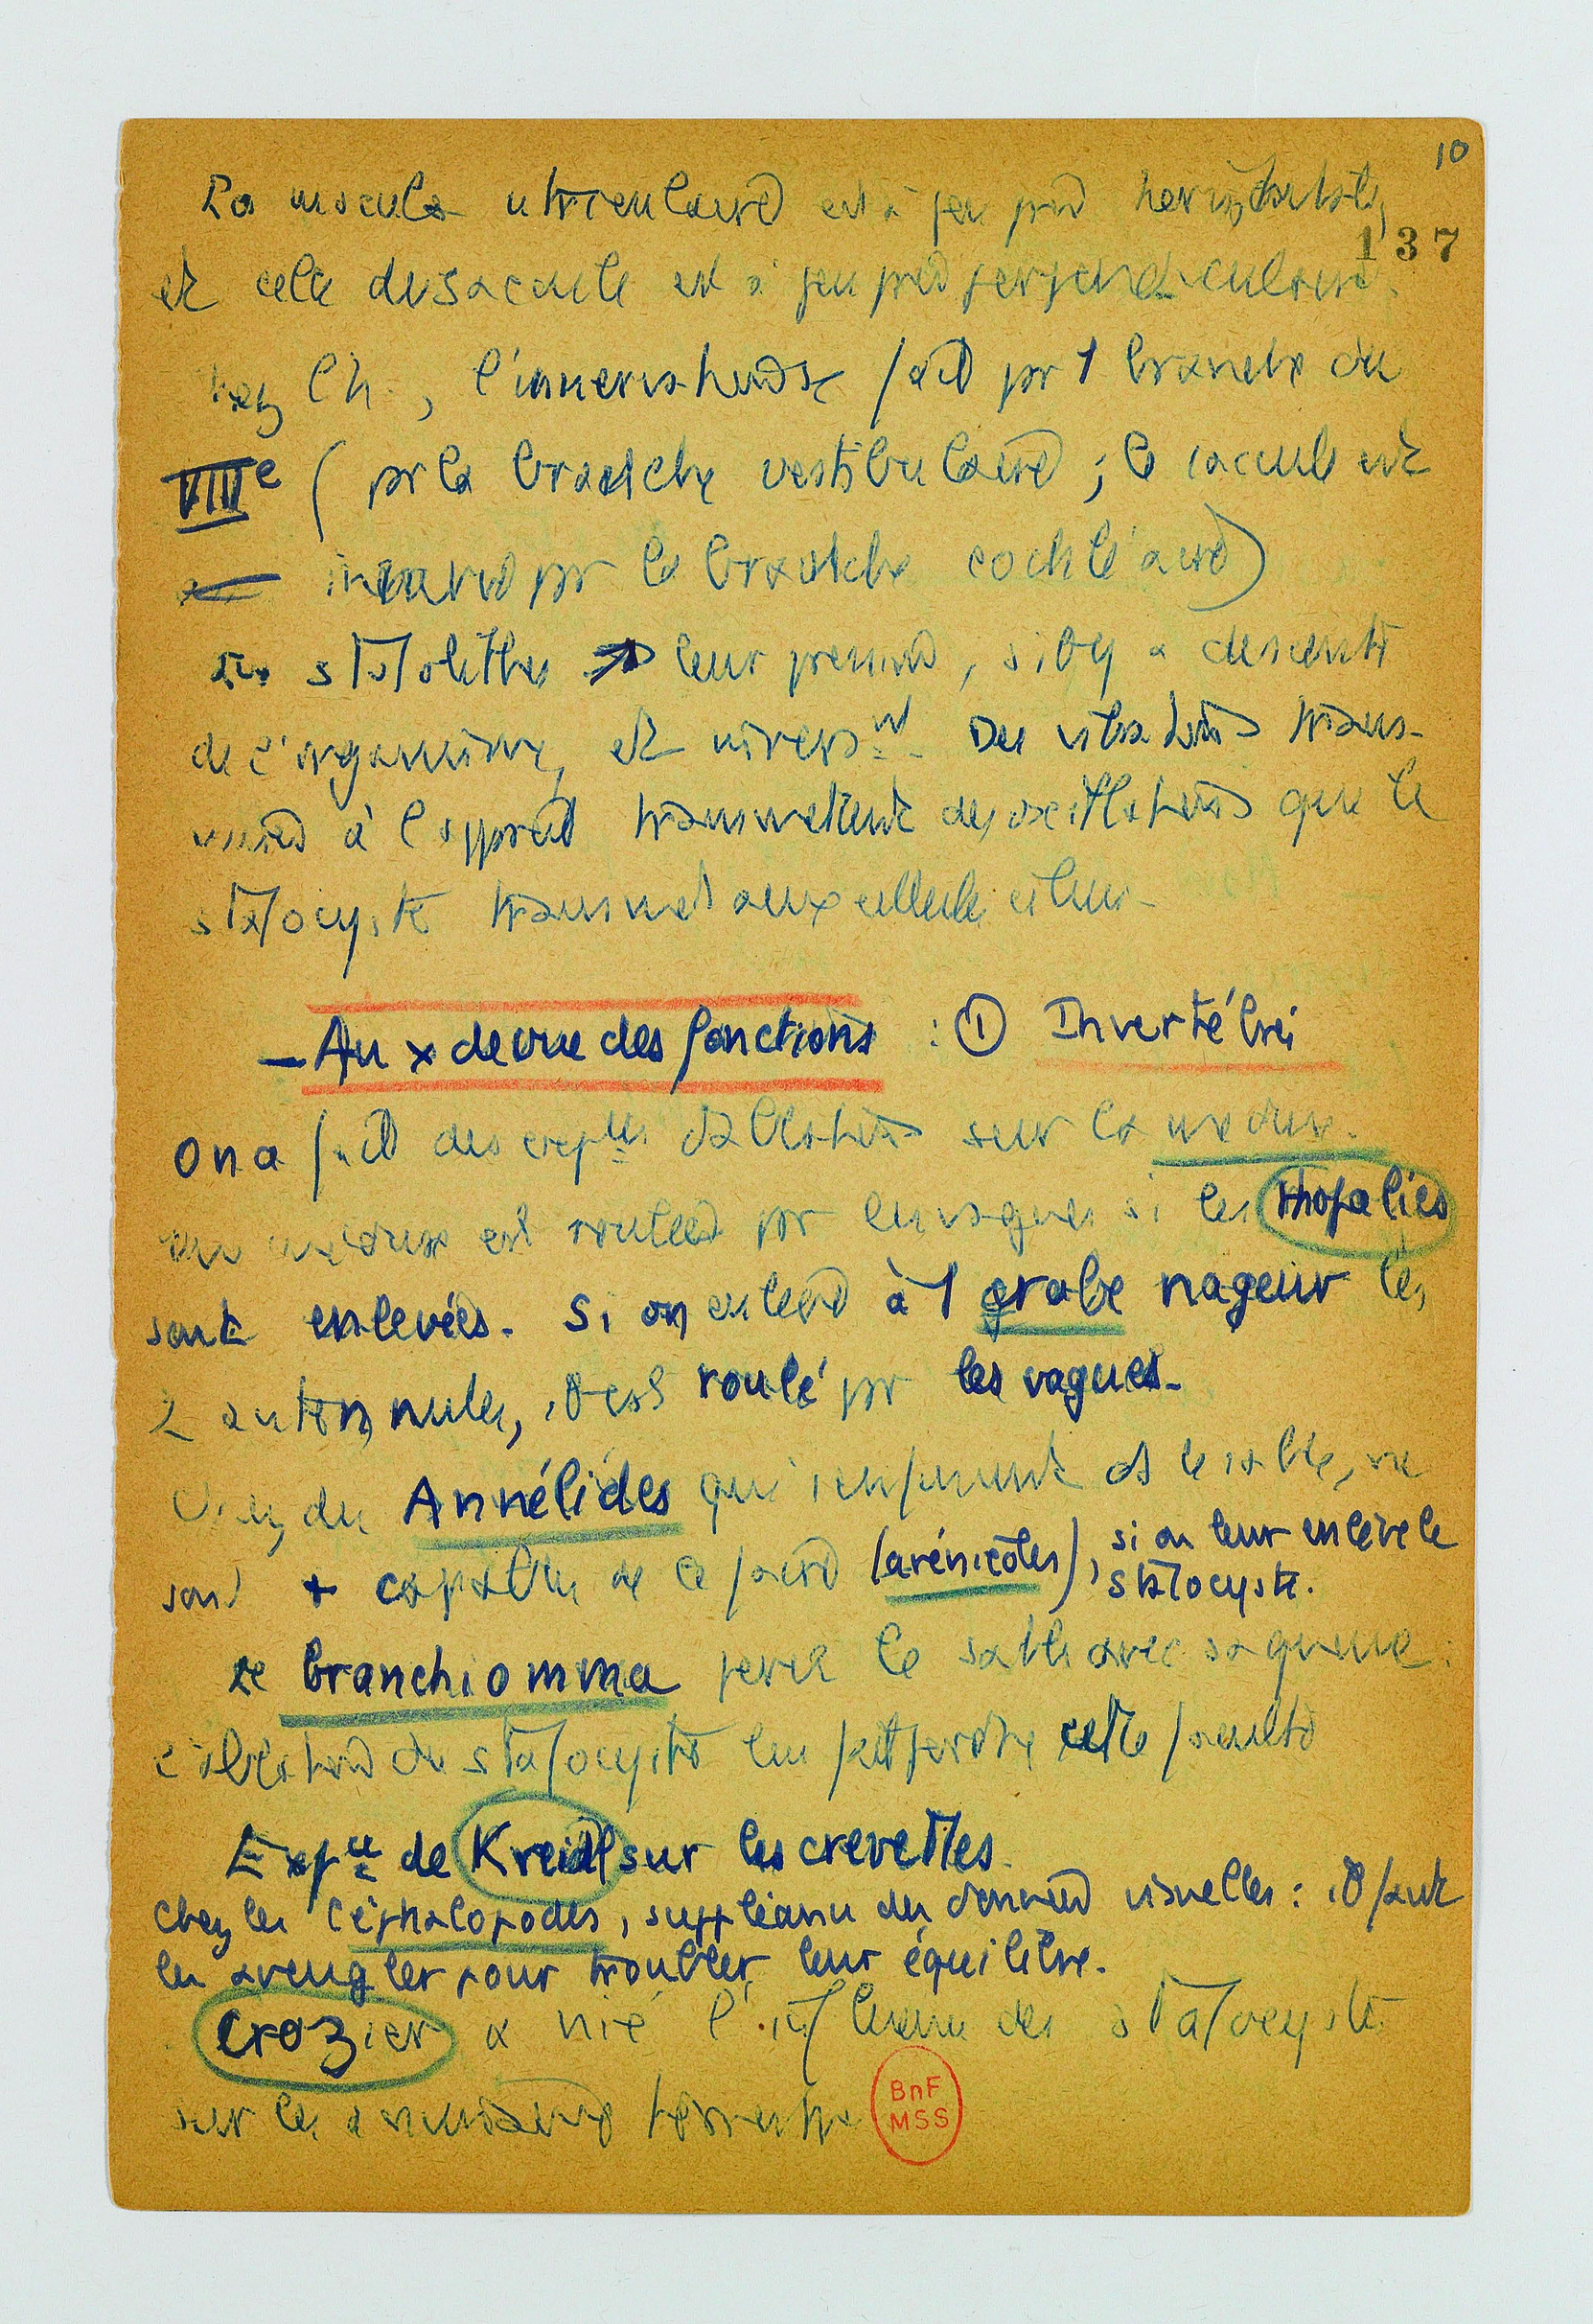 10
La macula utriculaire est à peu près horizontale,
137
et celle du saccule est à peu près perpendiculaire.
chez l'h., l'innervation se fait pr 1 branche du
VIIIe (pr la branche vestibulaire ; le saccule est
innervé pr la branche cochléaire)
statolithes leur pression, s'il y a descente
de l'organisme, et inverst. Des vibrations trans-
mises à l'appareil transmettent des oscillations que le
statocyste transmet aux cellules ciliées.
- Au x de vue des fonctions : ① Invertébrés
On a fait des expces d'ablation sur la méduse.
une méduse est roulée pr les vagues si les rhopalies
sont enlevées. Si on enlève à 1 crabe nageur les
2 antennules, il est roulé pr les vagues.
Chez des Annélides qui s'enfoncent ds le sable, ne
sont + capables de le faire (arénicoles), si on leur enlève le
statocyste.
Le branchiomma perce le sable avec sa queue :
l'ablation du statocyste lui fait perdre cette faculté
Expce de Kreidl sur les crevettes.
chez les Céphalopodes, suppléance des données visuelles : il faut
les aveugler pour troubler leur équilibre.
Crozier a nié l'influence des statocystes
sur les terrestres
BnF
MSS